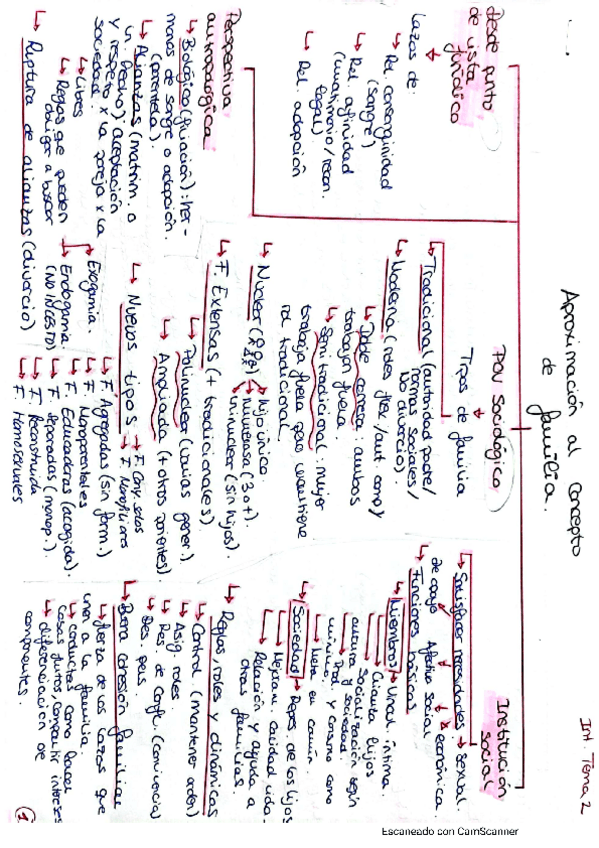 Int. Tema 2
Aproximación al concepto
de familia.
desde punto
de vista
jurídico
Lazos de:
↳ Rel. consanguinidad
(sangre)
↳ Rel. afinidad
(matrimonio/recon.
legal)
↳ Rel. adopción
Perspectiva
antropológica
↳ Biológico (filiación): her-
manos de sangre o adopción.
(parentela).
↳ Alianzas (matrim. o
un. hecho); aceptación
y respeto x la pareja x la
sociedad.
↳ Libres
↳ Reglas que pueden
obligar a buscar
↳ Exogamia.
↳ Endogamia
(NO INCESTO)
↳ Ruptura de alianzas (divorcio)
POV Sociológica
Tipos de familia
↳ Tradicional (autoridad padre/
normas sociales/
No divorcio).
↳ Moderna (roles flex/aut. como y
↳ Doble carrera: ambos
trabajan fuera.
↳ Semitradicional: mujer
trabaja fuera pero mantiene
rol tradicional.
↳ Nuclear
hijo único.
Numerosa (3 o +).
uninuclear (sin hijos).
↳ F. Extensas (+ tradicionales).
↳ Polinuclear (varias gener.)
↳ Ampliada (+ otros parientes).
↳ Nuevos tipos
↳ F. Cony. solos
↳ F. Monofiliares
↳ F. Agregadas (sin form.)
↳ F. Monoparentales
↳ F. Educadoras (acogida).
↳ F. Separadas (monop.).
↳ F. Reconstruida
↳ F. Homosexuales
Institución
social
↳ Satisfacer necesidades → sexual.
de apoyo Afectivo Social económica.
↳ Funciones básicas
↳ Miembros → Unid. íntima.
Crianza hijos
Socialización según
cultura y sociedad
Prod. y consumo como
Meta en común
Sociedad → Repos. de los hijos
Mejoran calidad vida.
Relación y ayuda a
otras familias.
↳ Reglas, roles y dinámicas
↳ Control (mantener orden)
↳ Asig. roles.
↳ Res. de Conflic. (convivencia)
↳ Des. pers.
↳ Buena cohesión familiar
↳ fuerza de los lazos que
une a la familia.
↳ conductas como hacer
cosas juntos, compartir intereses
↳ diferenciación de
componentes.
1
Escaneado con CamScanner